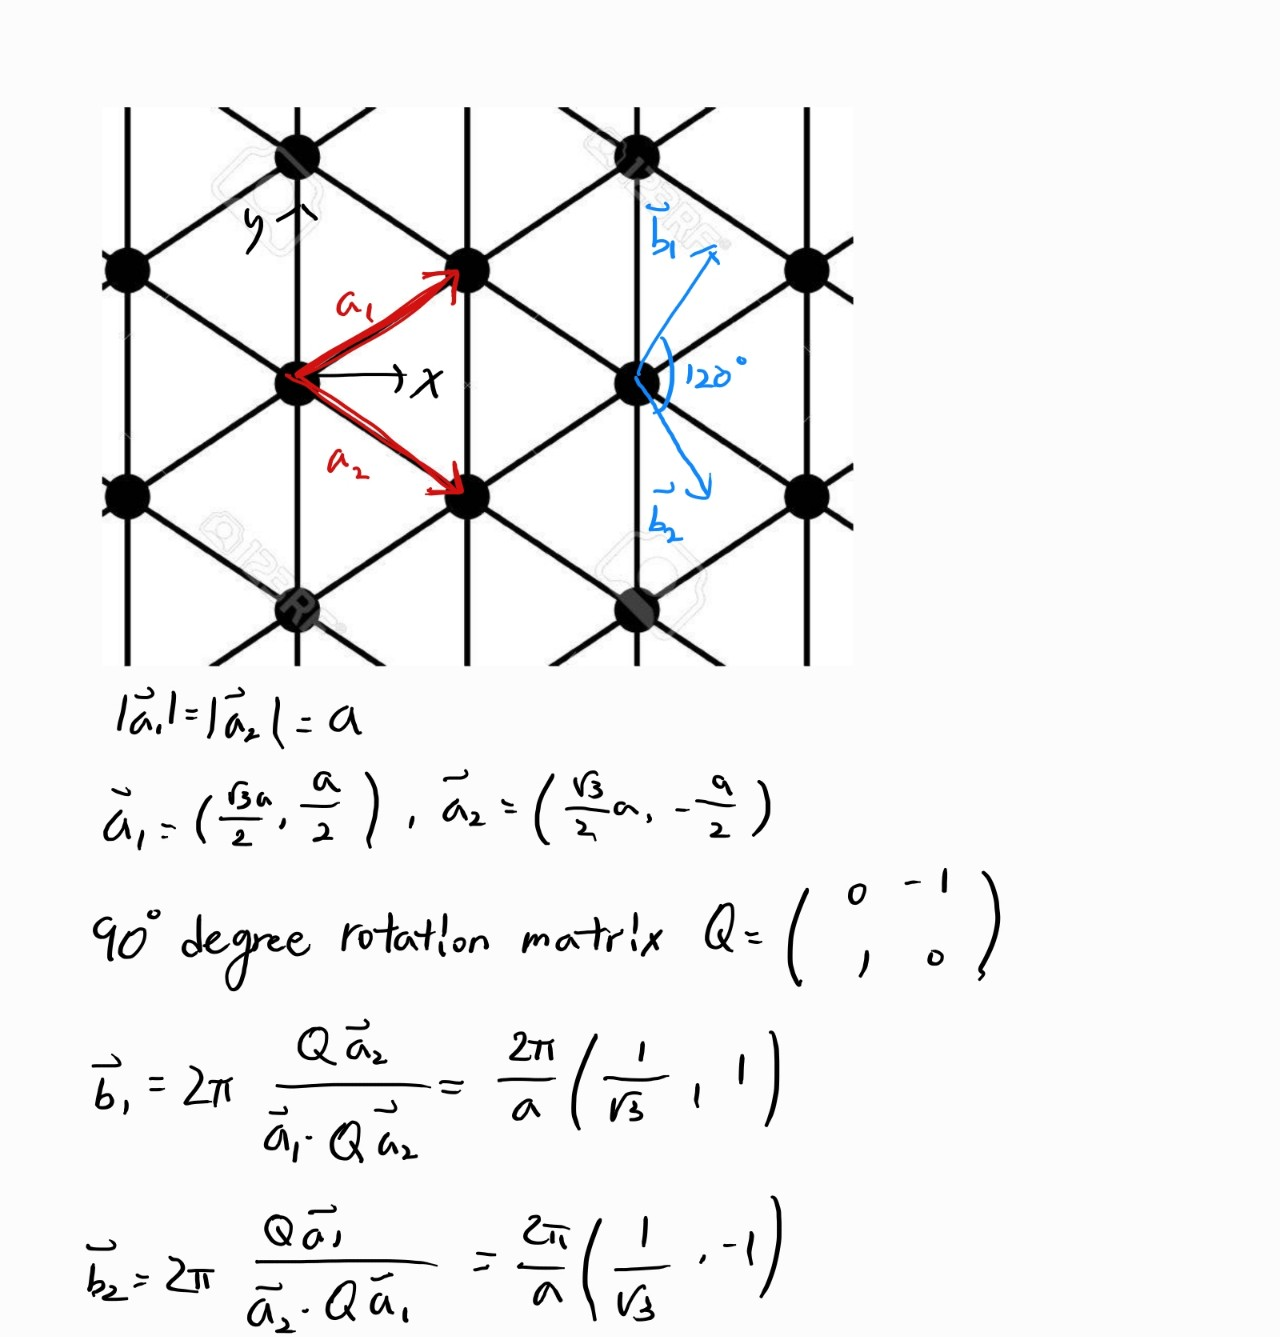 123RF
y
b⃗₁
a₁
x
120°
a₂
b⃗₂
123RF
|a⃗₁| = |a⃗₂| = a
a⃗₁ = (√3a/2, a/2), a⃗₂ = (√3/2 a, -a/2)
90° degree rotation matrix Q = ( 0 -1
1 0 )
b⃗₁ = 2π Qa⃗₂ / a⃗₁·Qa⃗₂ = 2π/a (1/√3, 1)
b⃗₂ = 2π Qa⃗₁ / a⃗₂·Qa⃗₁ = 2π/a (1/√3, -1)